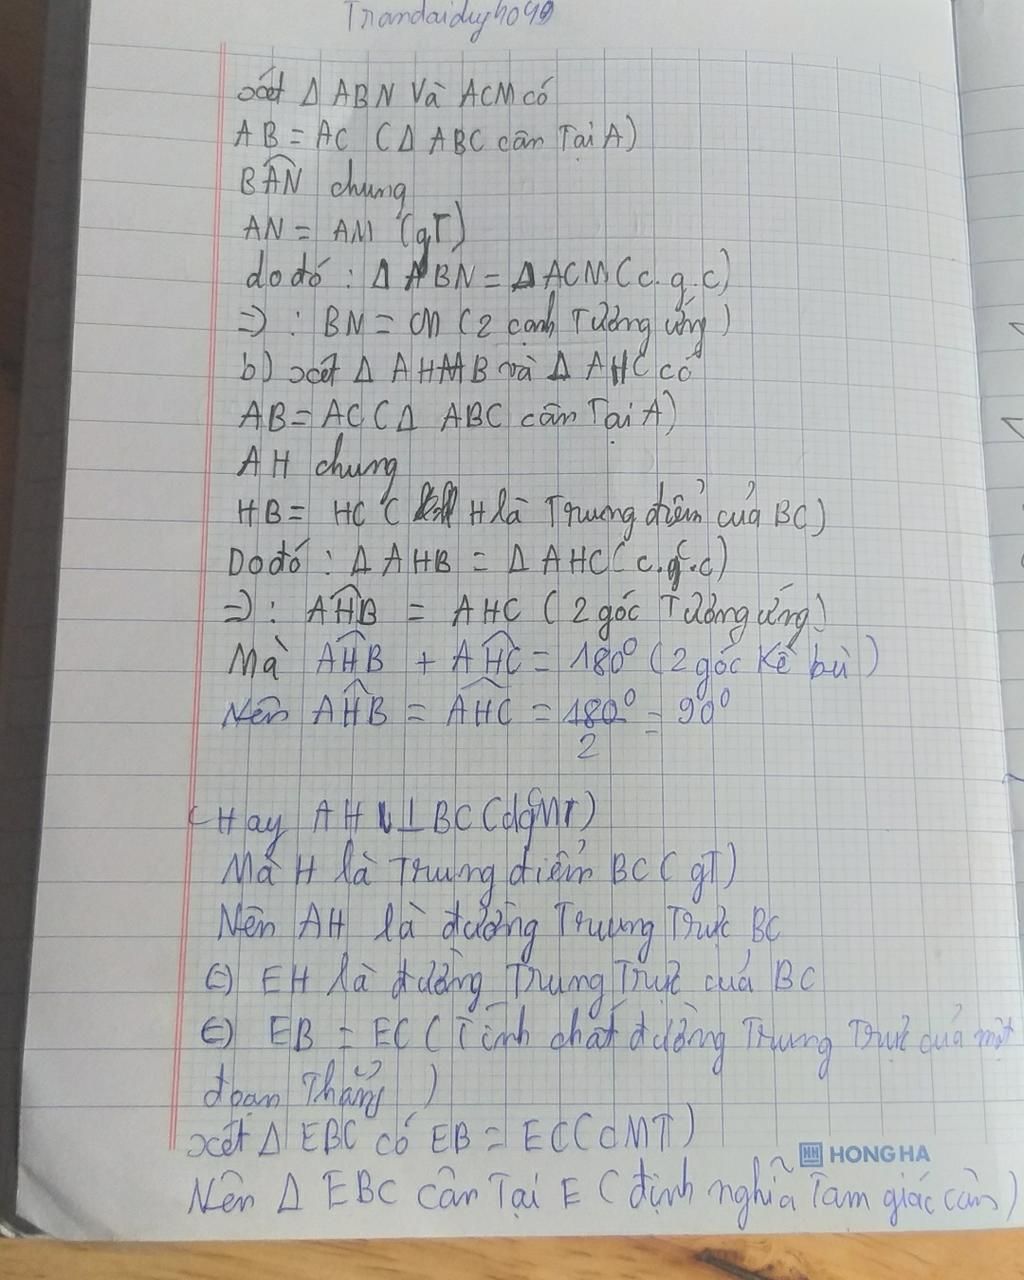 Trandaiduy4049
xét Δ ABN Và ACM có
AB = AC (Δ ABC cân Tại A)
BAN chung
AN = AM (gT)
do đó : Δ ABN = Δ ACM (c.g.c)
=> : BN = CM (2 cạnh Tương ứng)
b) xét Δ AHB và Δ AHC có
AB = AC (Δ ABC cân Tại A)
AH chung
HB = HC ( H là Trung điểm của BC)
Do đó : Δ AHB = Δ AHC (c.g.c)
=> : AHB = AHC (2 góc Tương ứng)
Mà AHB + AHC = 180° (2 góc Kề bù)
Nên AHB = AHC = 180°/2 = 90°
Hay AH ⊥ BC (dgMT)
Mà H là Trung điểm BC (gT)
Nên AH là đường Trung Trực BC
c) EH là đường Trung Trực của BC
c) EB = EC (Tính chất đường Trung Trực của một
đoạn Thẳng )
xét Δ EBC có EB = EC (cMT)
HONG HA
Nên Δ EBC cân Tại E (định nghĩa Tam giác cân)